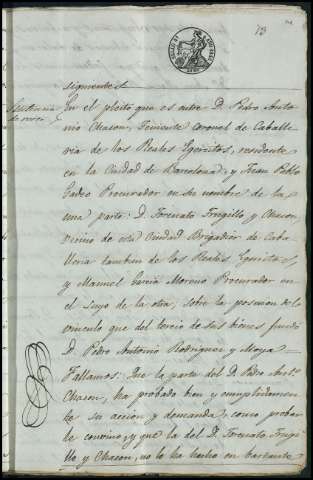 13
siguiente
Sentencia
de revista
En el pleito que es entre D. Pedro Anto
nio Chacon, Teniente coronel de Caballe
ria de los Reales Egercitos, residente
en la Ciudad de Barcelona, y Juan Pablo
Procurador en su nombre de la
una parte: D. Torcuato Trugillo y Chacon,
vecino de esta Ciudad Brigadier de Caba
lleria tambien de los Reales Egercitos,
y Manuel Garcia Moreno Procurador en
el suyo de la otra, sobre la posesion de el
vinculo que del tercio de sus bienes, fundó
D. Pedro Antonio Rodriguez y Moya
Fallamos: Que la parte del D. Pedro Antº
Chacon, ha probado bien y cumplidamen
te su accion y demanda, como probar
le convino; y que la del D. Torcuato Trugi
llo y Chacon, no lo ha hecho en bastante